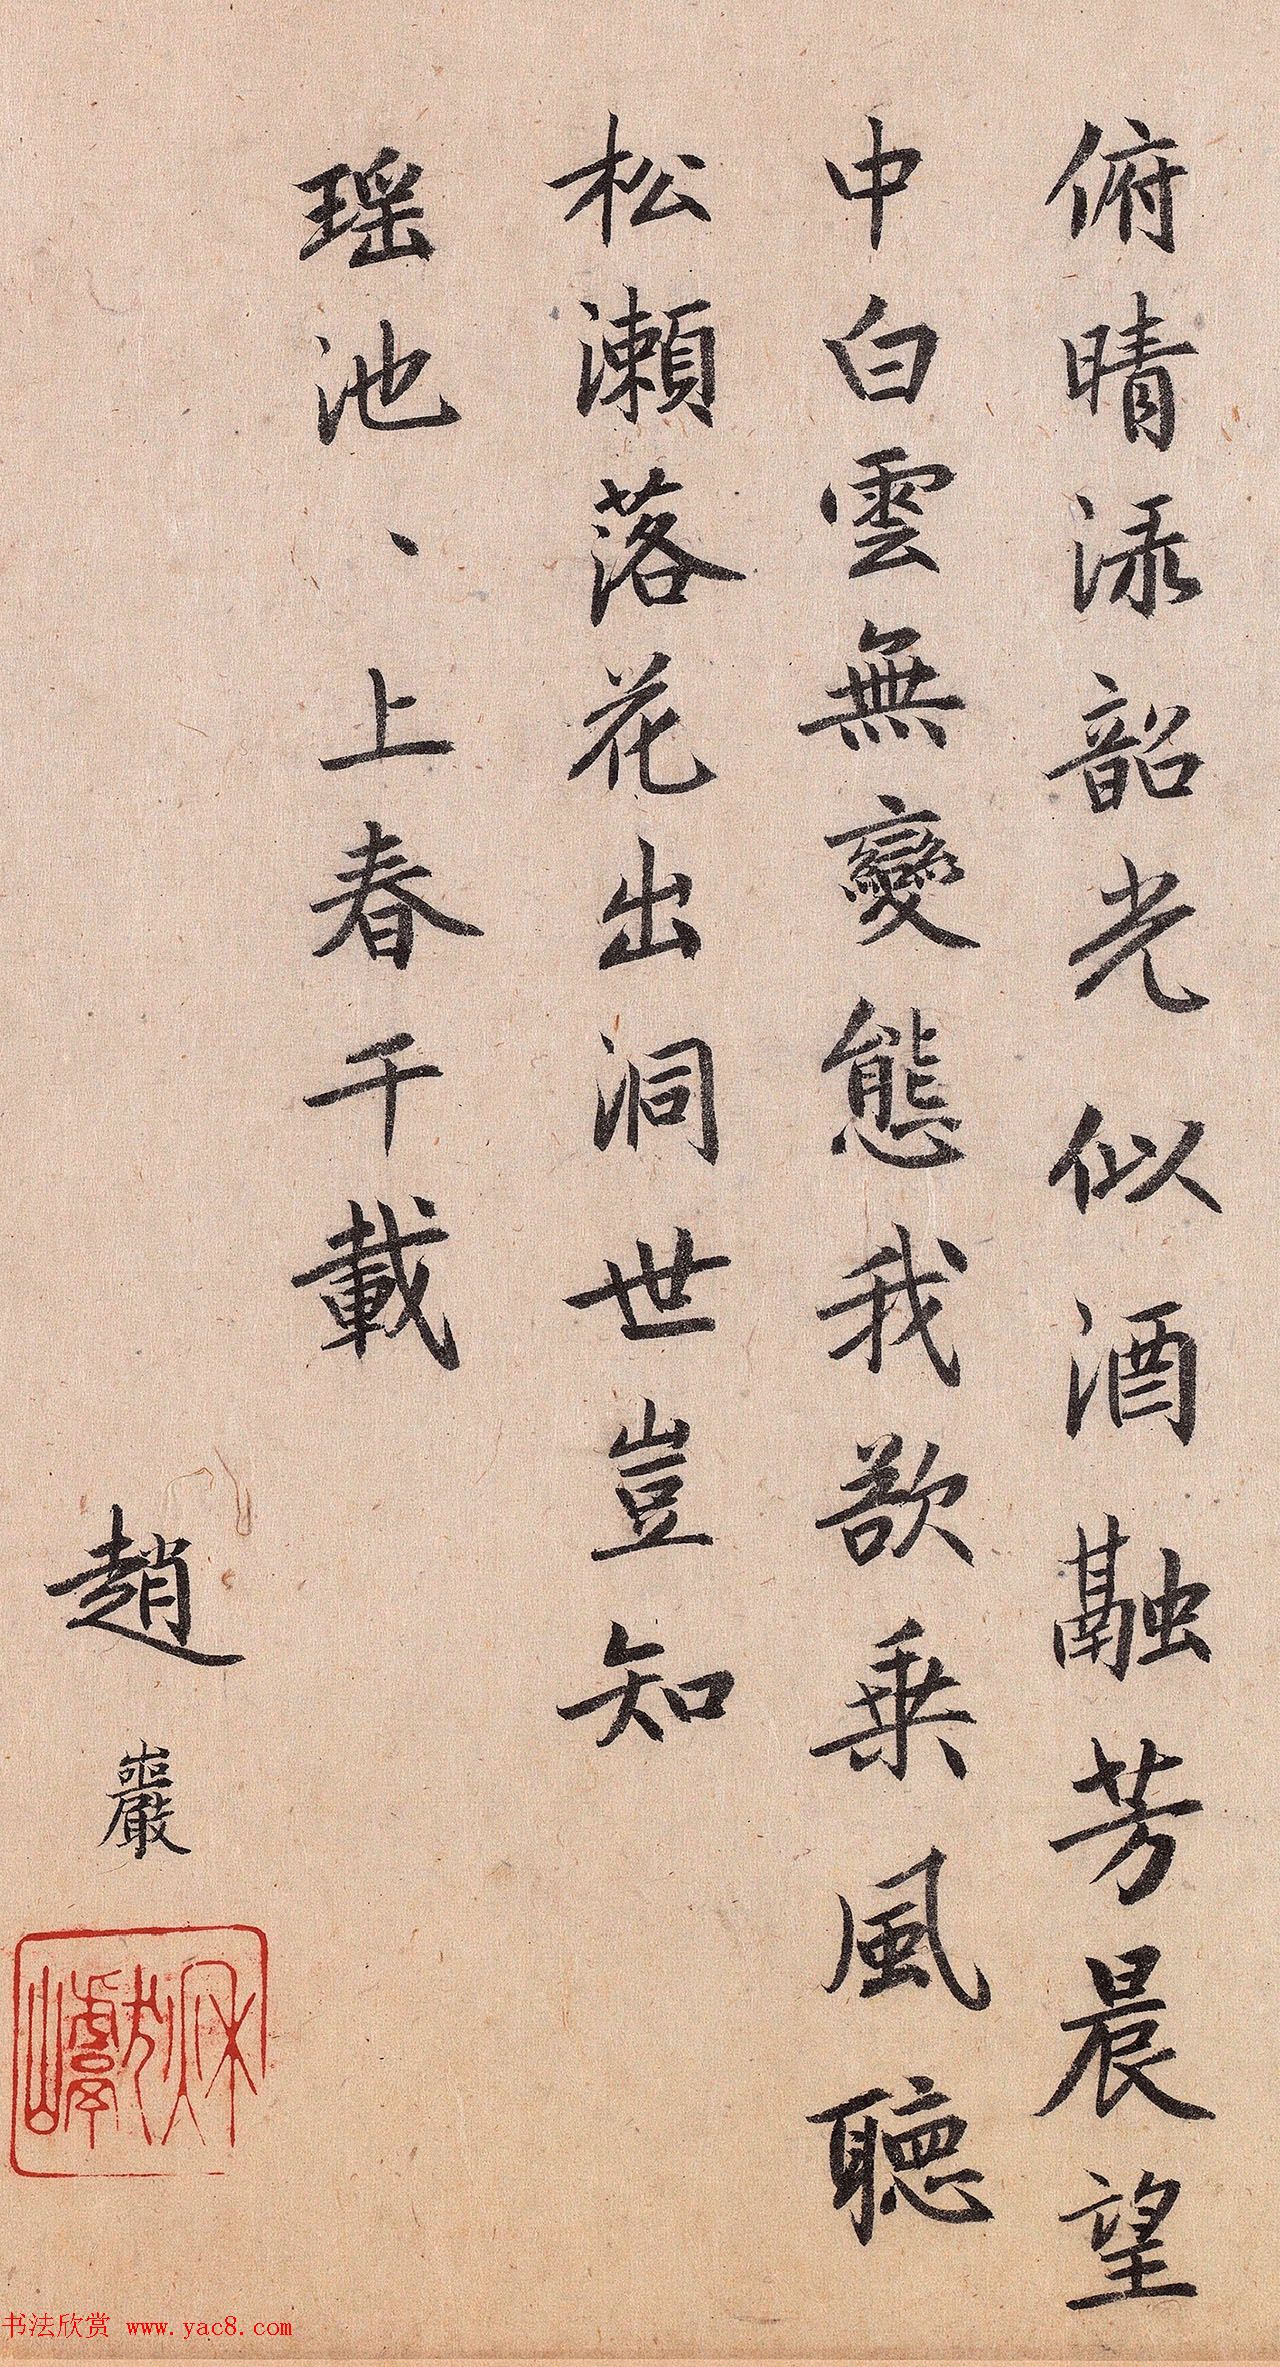 俯晴渌韶光似酒融芳晨望
中白雲無變態我欲乗風聽
松瀨落花出洞世豈知
瑶池、上春千載
趙巖
书法欣赏 www.yac8.com